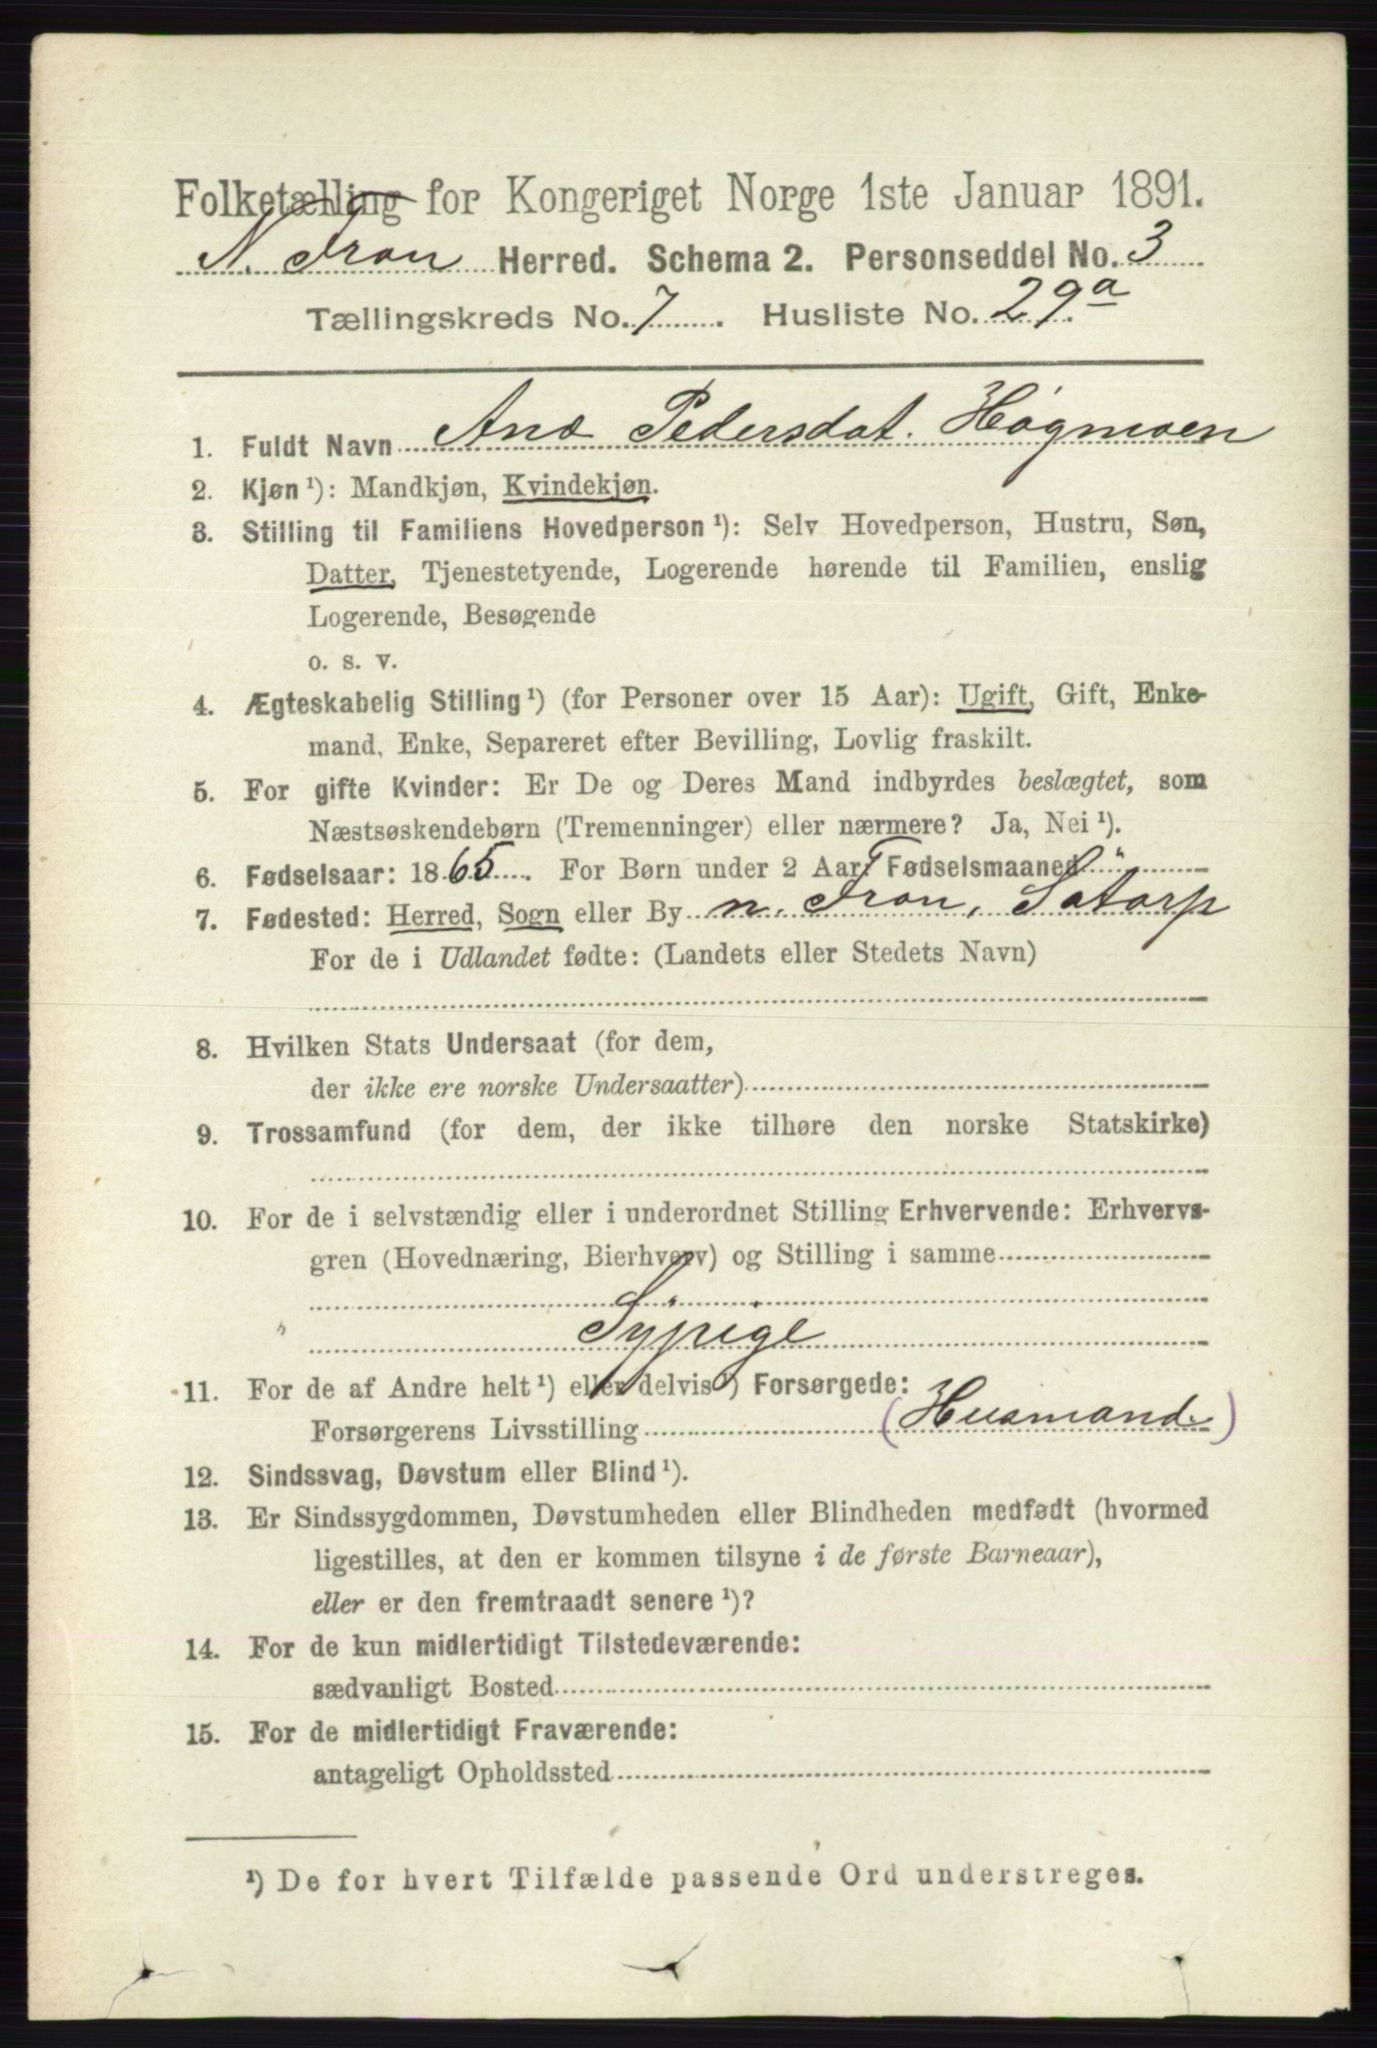 Folketælling for Kongeriget Norge 1ste Januar 1891.
N. Fron Herred. Schema 2. Personseddel No. 3
Tællingskreds No. 7. Husliste No. 29a
1. Fuldt Navn Ane Pedersdat. Høgmoen
2. Kjøn ¹): Mandkjøn, Kvindekjøn.
3. Stilling til Familiens Hovedperson ¹): Selv Hovedperson, Hustru, Søn,
Datter, Tjenestetyende, Logerende hørende til Familien, enslig
Logerende, Besøgende
o. s. v.
4. Ægteskabelig Stilling ¹) (for Personer over 15 Aar): Ugift, Gift, Enke-
mand, Enke, Separeret efter Bevilling, Lovlig fraskilt.
5. For gifte Kvinder: Er De og Deres Mand indbyrdes beslægtet, som
Næstsøskendebørn (Tremenninger) eller nærmere? Ja, Nei ¹).
6. Fødselsaar: 1865. For Børn under 2 Aar, Fødselsmaaned
7. Fødested: Herred, Sogn eller By n. Fron, Sødorp
For de i Udlandet fødte: (Landets eller Stedets Navn)
8. Hvilken Stats Undersaat (for dem,
der ikke ere norske Undersaatter)
9. Trossamfund (for dem, der ikke tilhøre den norske Statskirke)
10. For de i selvstændig eller i underordnet Stilling Erhvervende: Erhvervs-
gren (Hovednæring, Bierhverv) og Stilling i samme
" Sypige
11. For de af Andre helt ¹) eller delvis ¹) Forsørgede:
Forsørgerens Livsstilling (Husmand.)
12. Sindssvag, Døvstum eller Blind ¹).
13. Er Sindssygdommen, Døvstumheden eller Blindheden medfødt (hvormed
ligestilles, at den er kommen tilsyne i de første Barneaar),
eller er den fremtraadt senere ¹)?
14. For de kun midlertidigt Tilstedeværende:
sædvanligt Bosted
15. For de midlertidigt Fraværende:
antageligt Opholdssted
¹) De for hvert Tilfælde passende Ord understreges.